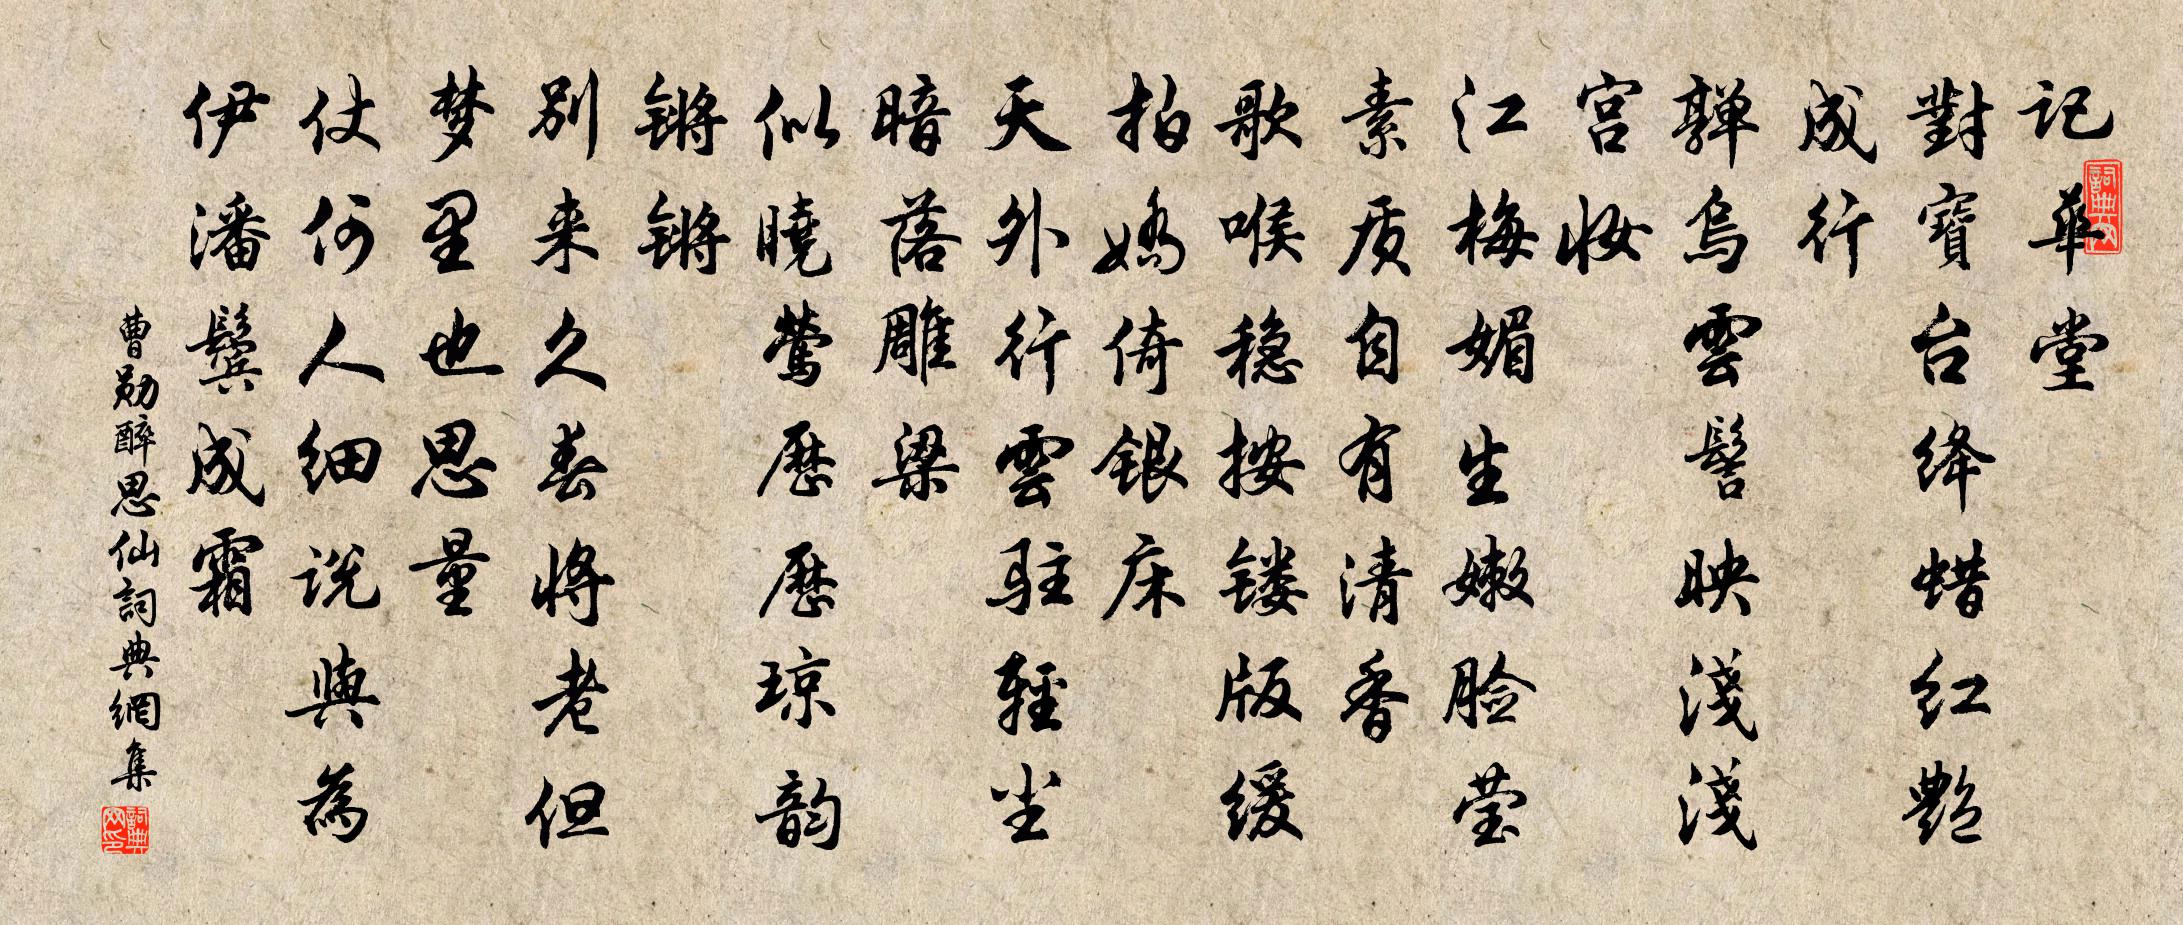 记華堂
對寶台绛蜡红艷
成行
亸乌雲髻映淺淺
宫妆
江梅媚生嫩脸莹
素质自有清香
歌喉稳按镂版缓
拍娇倚银床
天外行雲驻轻尘
暗落雕梁
似曉莺历历琼韵
锵锵
别来久春将老但
梦里也思量
仗何人细说與為
伊潘鬓成霜
曹勋醉思仙詞典網集
詞典网
詞典网印